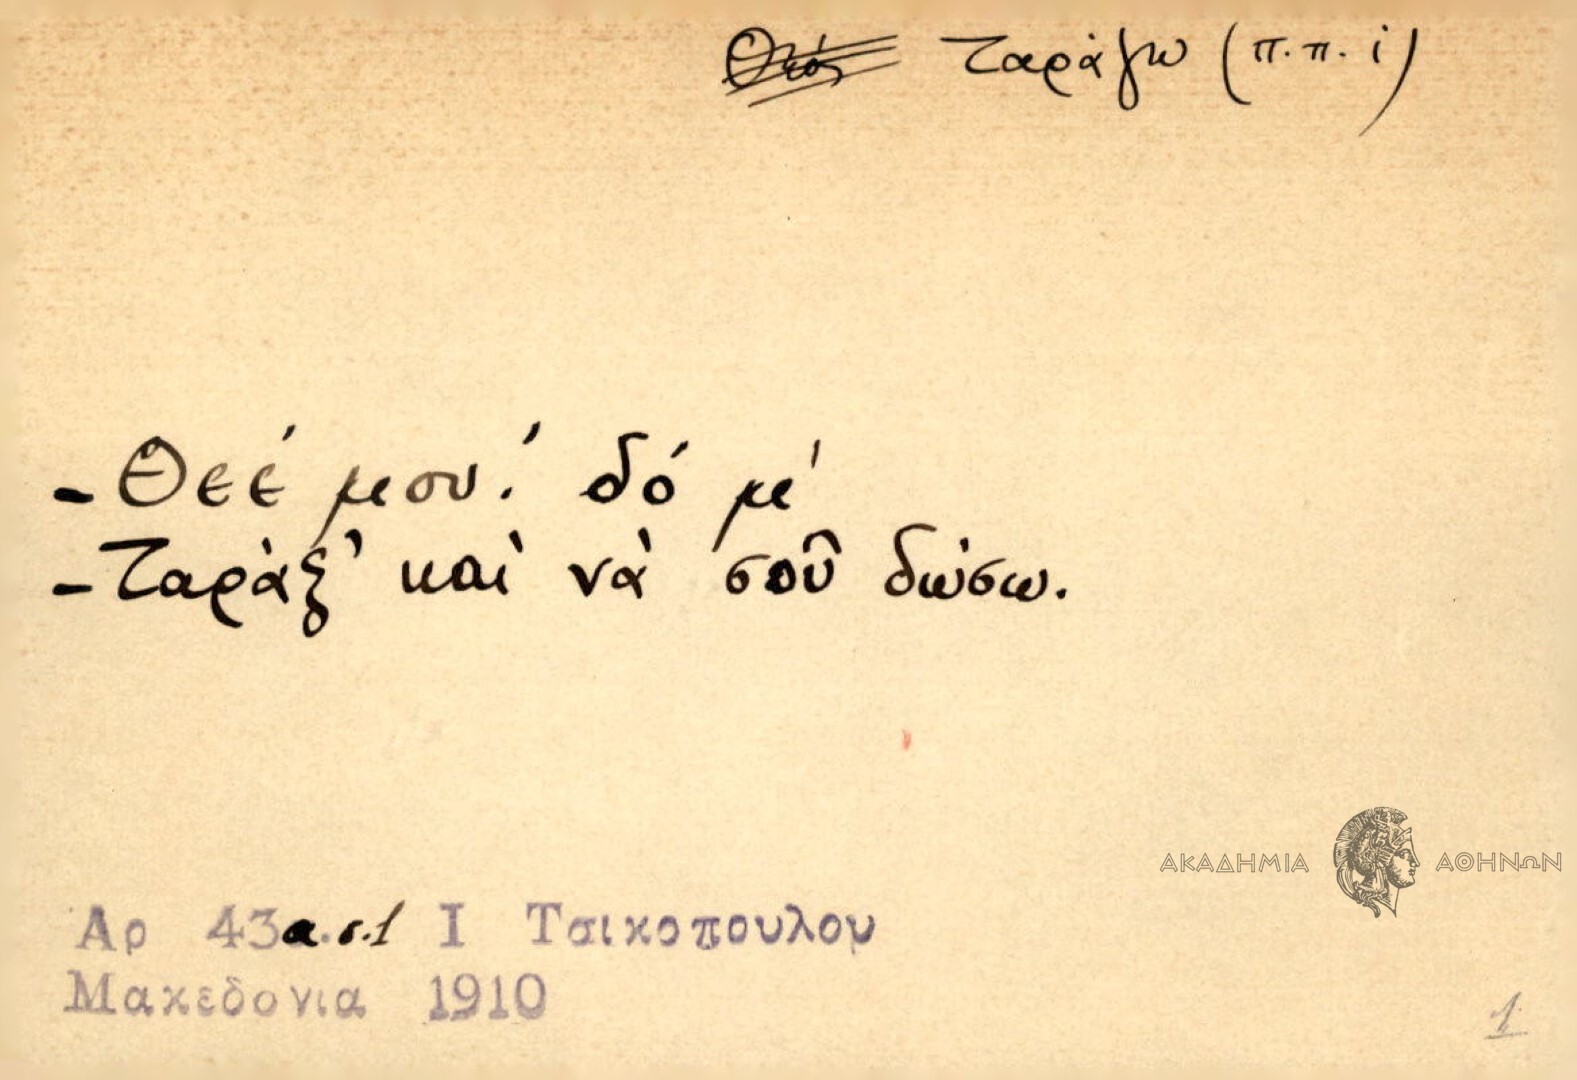 Θεός ταράγω (π.π. ἰ)
- Θεέ μου! δό με
- Ταράξ' καὶ νὰ σοῦ δώσω.
ΑΚΑΔΗΜΙΑ ΑΘΗΝΩΝ
Αρ 43α.σ.1 Ι Τσικοπουλου
Μακεδονια 1910
1